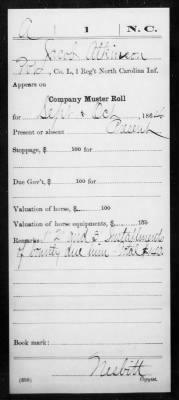 A 1 N.C.
Jacob Atkinson
Pvt, Co. L, 1 Reg't North Carolina Inf.
Appears on
Company Muster Roll
for Sept & Oct, 1864.
Present or absent Present
Stoppage, $ 100 for
Due Gov't, $ 100 for
Valuation of horse, $ 100
Valuation of horse equipments, $ 100
Remarks: 1 2 and 3 installments
of bounty due him
Book mark:
Nesbitt
(358) Copyist.